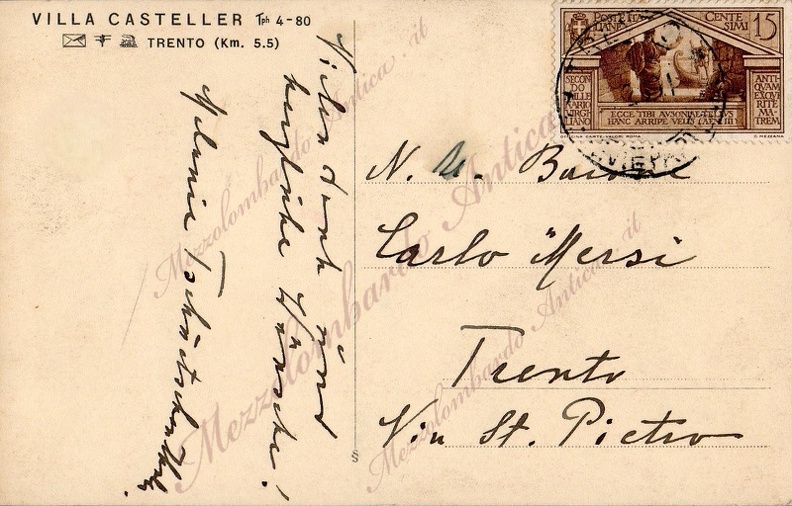 VILLA CASTELLER Tph 4-80
TRENTO (Km. 5.5)
Vielen Dank und
herzliche Wünsche!
Melanie
POSTE ITALIANE
CENTESIMI 15
SECONDO MILLENARIO VIRGILIANO
ANTIQUAM EXQUIRITE MATREM
ECCE TIBI AUSONIAE TELLUS
HANC ARRIPE VELIS (AEN III)
OFFICINA CARTE-VALORI ROMA
C. MEZZANA
N. H. Barone
Carlo Mersi
Trento
Via St. Pietro
§
Mezzolombardo Antica.it
Mezzolombardo Antica.it
Mezzolombardo Antica.it